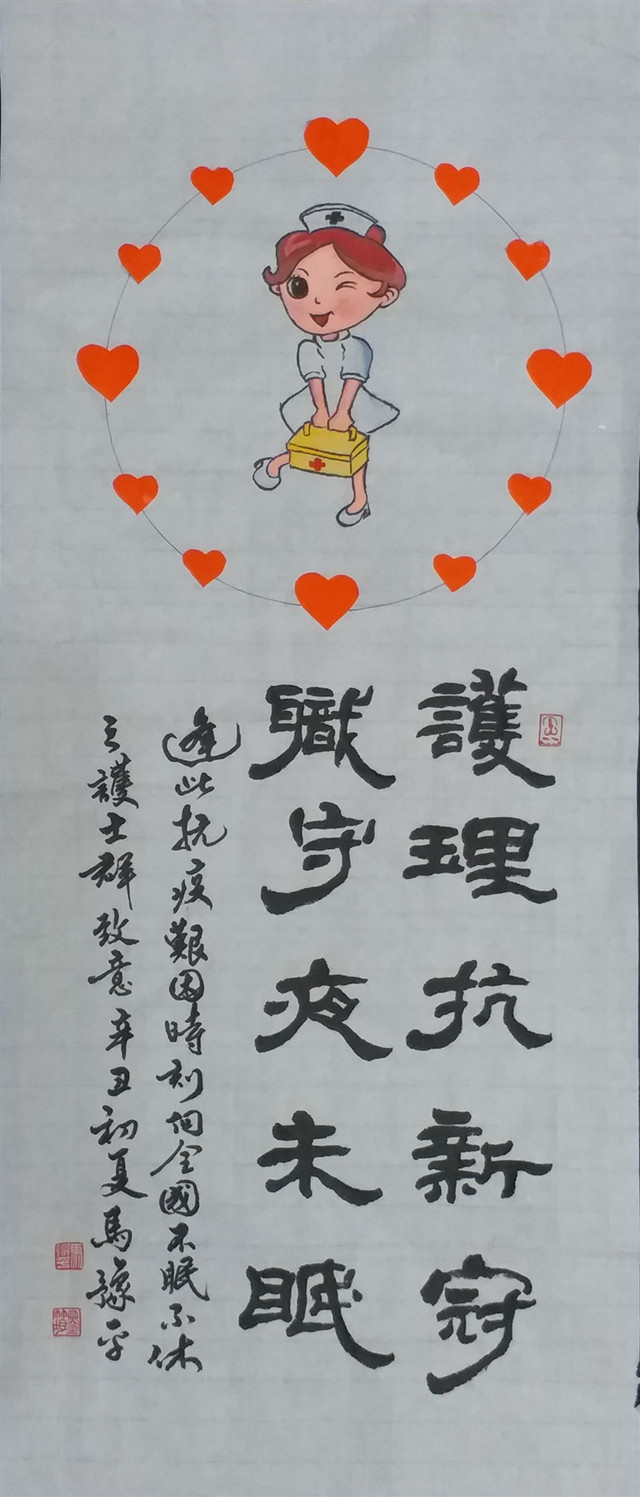 護理抗新冠
職守夜未眠
逢此抗疫艱困時刻向全國不眠不休
之護士群致意辛丑初夏馬豫平